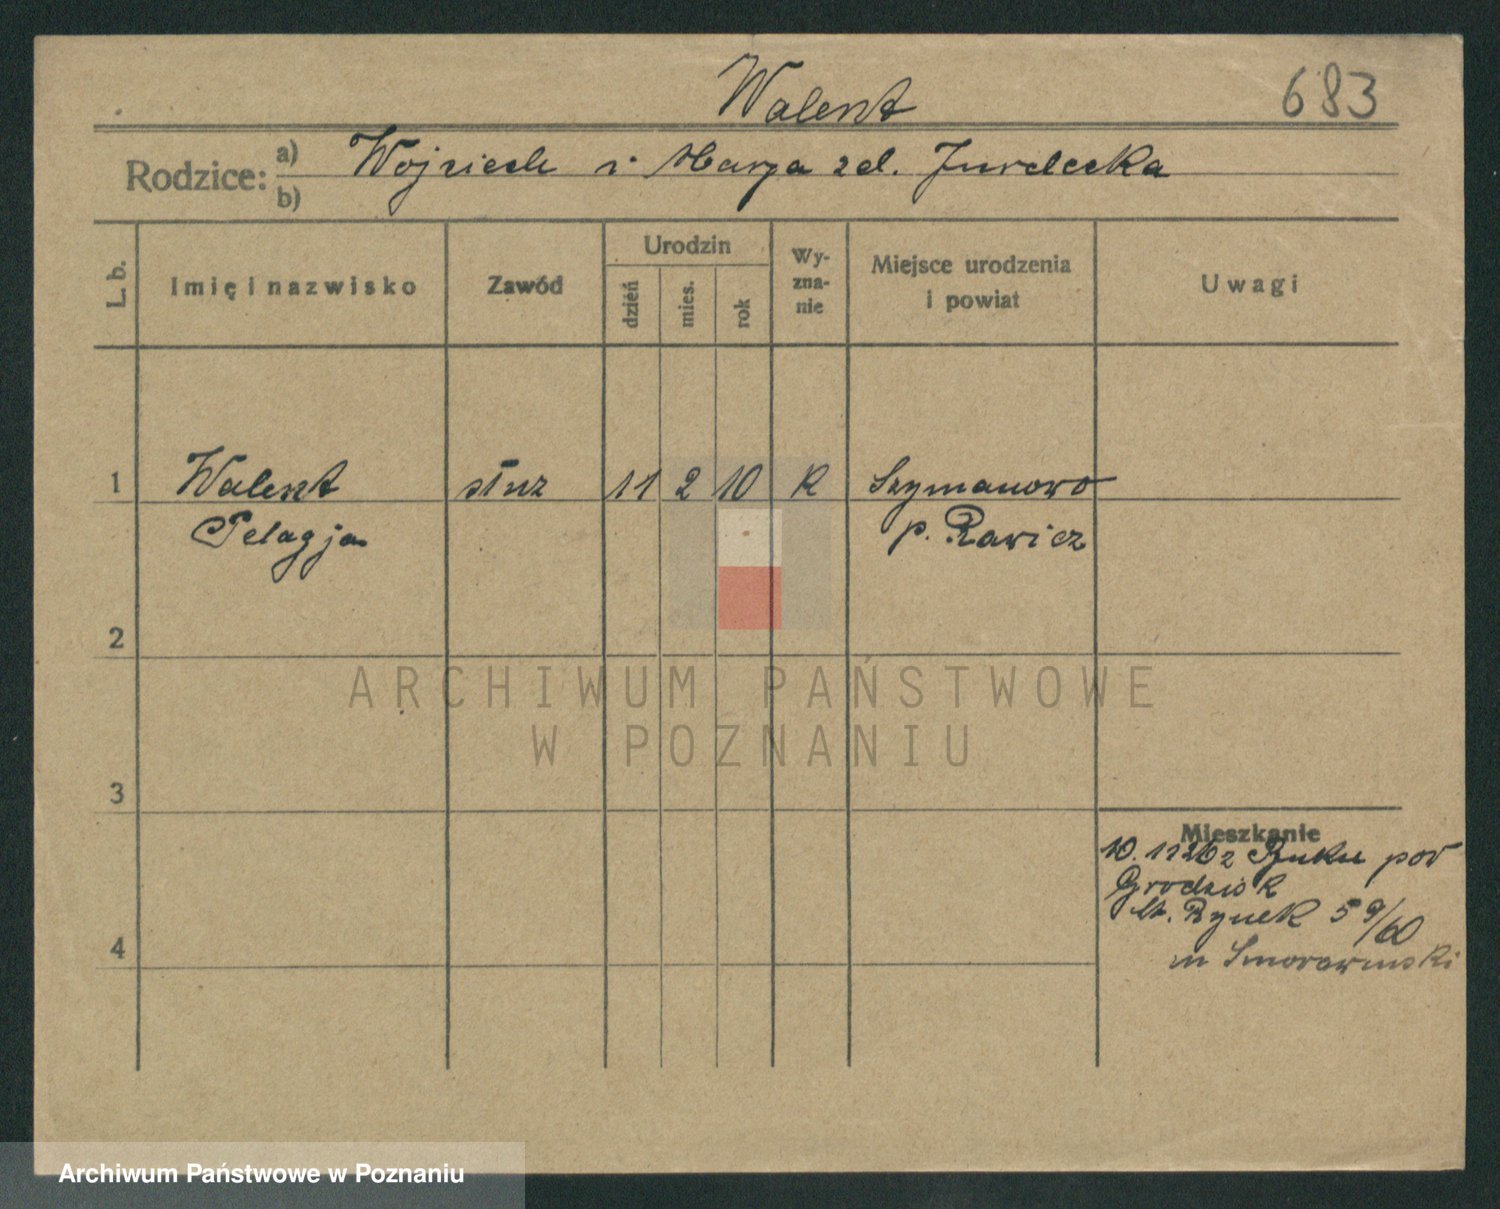 Walent
683
Rodzice: a) Wojciech i Marya zd.
b)
L. b. Imię i nazwisko Zawód Urodzin dzień mies. rok Wyzna-nie Miejsce urodzenia i powiat Uwagi
1 Walent służ 11 2 10 K Szymanowo
Pelagja p. Rawicz
2
ARCHIWUM PAŃSTWOWE
W POZNANIU
3
Mieszkanie
z Buku pow
Grodzisk
St. Rynek 59/60
4
Archiwum Państwowe w Poznaniu